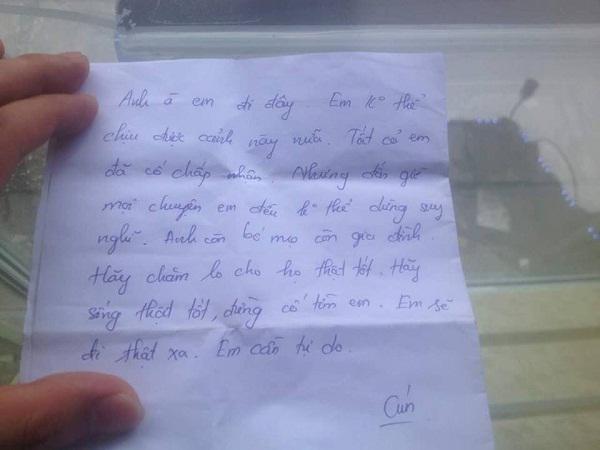 Anh ã em đi đây. Em ko thể
chịu được cảnh này nữa. Tất cả em
đã cố chấp nhận. Nhưng đến giờ
mọi chuyện em đều ko thể dừng suy
nghĩ. Anh còn bố mẹ còn gia đình
Hãy chăm lo cho họ thật tốt. Hãy
sống thật tốt, đừng cố tìm em. Em sẽ
đi thật xa. Em cần tự do.
Cún